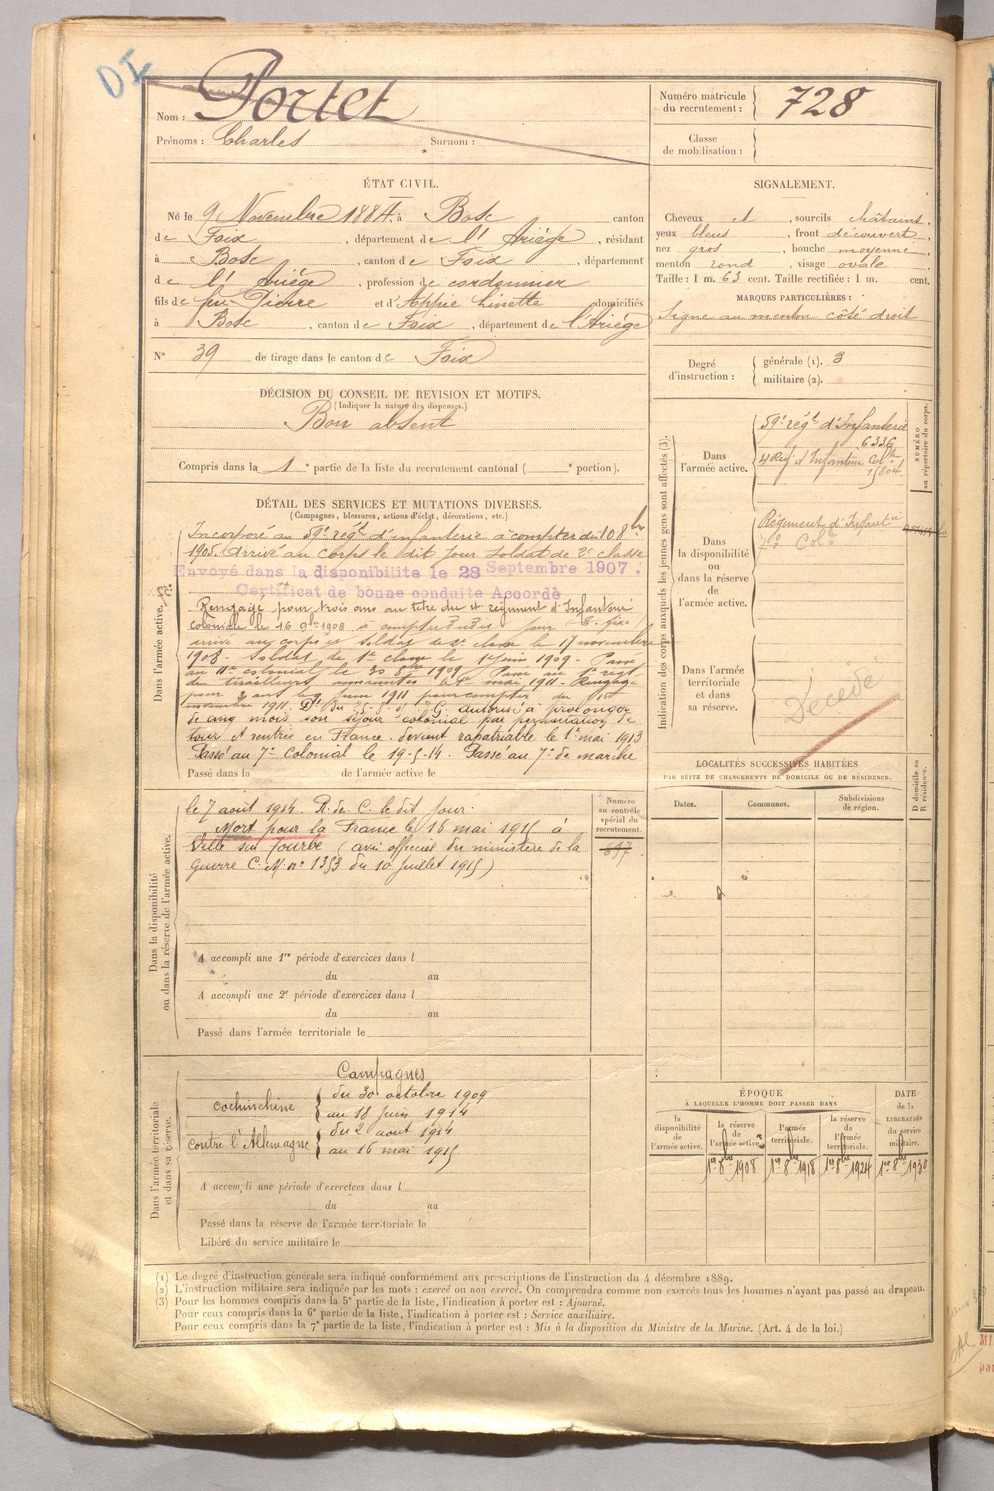 DI
Nom : Portet
Prénoms : Charles Surnom :
Numéro matricule du recrutement : 728
Classe de mobilisation :
ÉTAT CIVIL.
Né le 9 Novembre 1884 à Bosc canton
de Foix, département de l'Ariège, résidant
à Bosc, canton de Foix, département
de l'Ariège, profession de cordonnier
fils de feu Pierre et d'Appie Linette domiciliés
à Bosc, canton de Foix, département de l'Ariège
N° 39 de tirage dans le canton de Foix
SIGNALEMENT.
Cheveux et, sourcils châtains,
yeux bleus, front découvert,
nez gros, bouche moyenne,
menton rond, visage ovale
Taille : 1 m. 63 cent. Taille rectifiée : 1 m. cent.
MARQUES PARTICULIÈRES :
Signe au menton côté droit
Degré d'instruction : générale (1). 3
militaire (2).
DÉCISION DU CONSEIL DE REVISION ET MOTIFS.
(Indiquer la nature des dispenses.)
Bon absent
Compris dans la 1e partie de la liste du recrutement cantonal ( e portion).
DÉTAIL DES SERVICES ET MUTATIONS DIVERSES.
(Campagnes, blessures, actions d'éclat, décorations, etc.)
Dans l'armée active.
Incorporé au 59e régt d'infanterie à compter du 8 bre
1905. Arrivé au corps le dit jour soldat de 2e classe
Envoyé dans la disponibilité le 28 Septembre 1907.
Certificat de bonne conduite Accordé
Rengagé pour trois ans au titre du 4 régiment d'Infanterie
coloniale le 16 9bre 1908 à compter du dit jour
arrivé au corps et soldat de 2e classe le 17 novembre
1908 - Soldat de 1e classe le 1er juin 1909 - Passé
au 11e colonial le 30 8bre 1909. Passé au 1e régt
de tirailleurs annamites le mai 1911 - Rengagé
pour 3 ans le 9 juin 1911 pour compter du
novembre 1911. autorisé à prolonger
de cinq mois son séjour colonial par permutation de
tour et rentrée en France. devient rapatriable le 1er mai 1913
Passé au 7e Colonial le 19-5-14. Passé au 7e de marche
Passé dans la de l'armée active le
Indication des corps auxquels les jeunes gens sont affectés (3).
NUMÉRO au répertoire du corps.
Dans l'armée active.
59e régt d'Infanterie
6336
4 Reg d'Infanterie Colle
15804
Dans la disponibilité ou dans la réserve de l'armée active.
Régiment d'Infantie
7e Colle
Dans l'armée territoriale et dans sa réserve.
Décédé
LOCALITÉS SUCCESSIVES HABITÉES
PAR SUITE DE CHANGEMENTS DE DOMICILE OU DE RÉSIDENCE.
Dates. Communes. Subdivisions de région. D domicile ou R résidence.
Dans la disponibilité ou dans la réserve de l'armée active.
Numéro au contrôle spécial du recrutement.
697
le 7 août 1914 R. de C. le dit jour.
Mort pour la France le 16 mai 1915 à
Ville sur Tourbe (avis officiel du ministère de la
Guerre C. M. n° 1353 du 10 juillet 1915)
A accompli une 1re période d'exercices dans l
du au
A accompli une 2e période d'exercices dans l
du au
Passé dans l'armée territoriale le
Dans l'armée territoriale et dans sa réserve.
Campagnes
Cochinchine du 30 octobre 1909
au 18 juin 1914
contre l'Allemagne du 2 août 1914
au 16 mai 1915
A accompli une période d'exercices dans l
du au
Passé dans la réserve de l'armée territoriale le
Libéré du service militaire le
ÉPOQUE
À LAQUELLE L'HOMME DOIT PASSER DANS
la disponibilité de l'armée active. la réserve de l'armée active. l'armée territoriale. la réserve de l'armée territoriale. DATE de la LIBÉRATION du service militaire.
1er 8bre 1908 1er 8bre 1918 1er 8bre 1924 1er 8bre 1930
(1) Le degré d'instruction générale sera indiqué conformément aux prescriptions de l'instruction du 4 décembre 1889.
(2) L'instruction militaire sera indiquée par les mots : exercé ou non exercé. On comprendra comme non exercés tous les hommes n'ayant pas passé au drapeau.
(3) Pour les hommes compris dans la 5e partie de la liste, l'indication à porter est : Ajourné.
Pour ceux compris dans la 6e partie de la liste, l'indication à porter est : Service auxiliaire.
Pour ceux compris dans la 7e partie de la liste, l'indication à porter est : Mis à la disposition du Ministre de la Marine. (Art. 4 de la loi.)